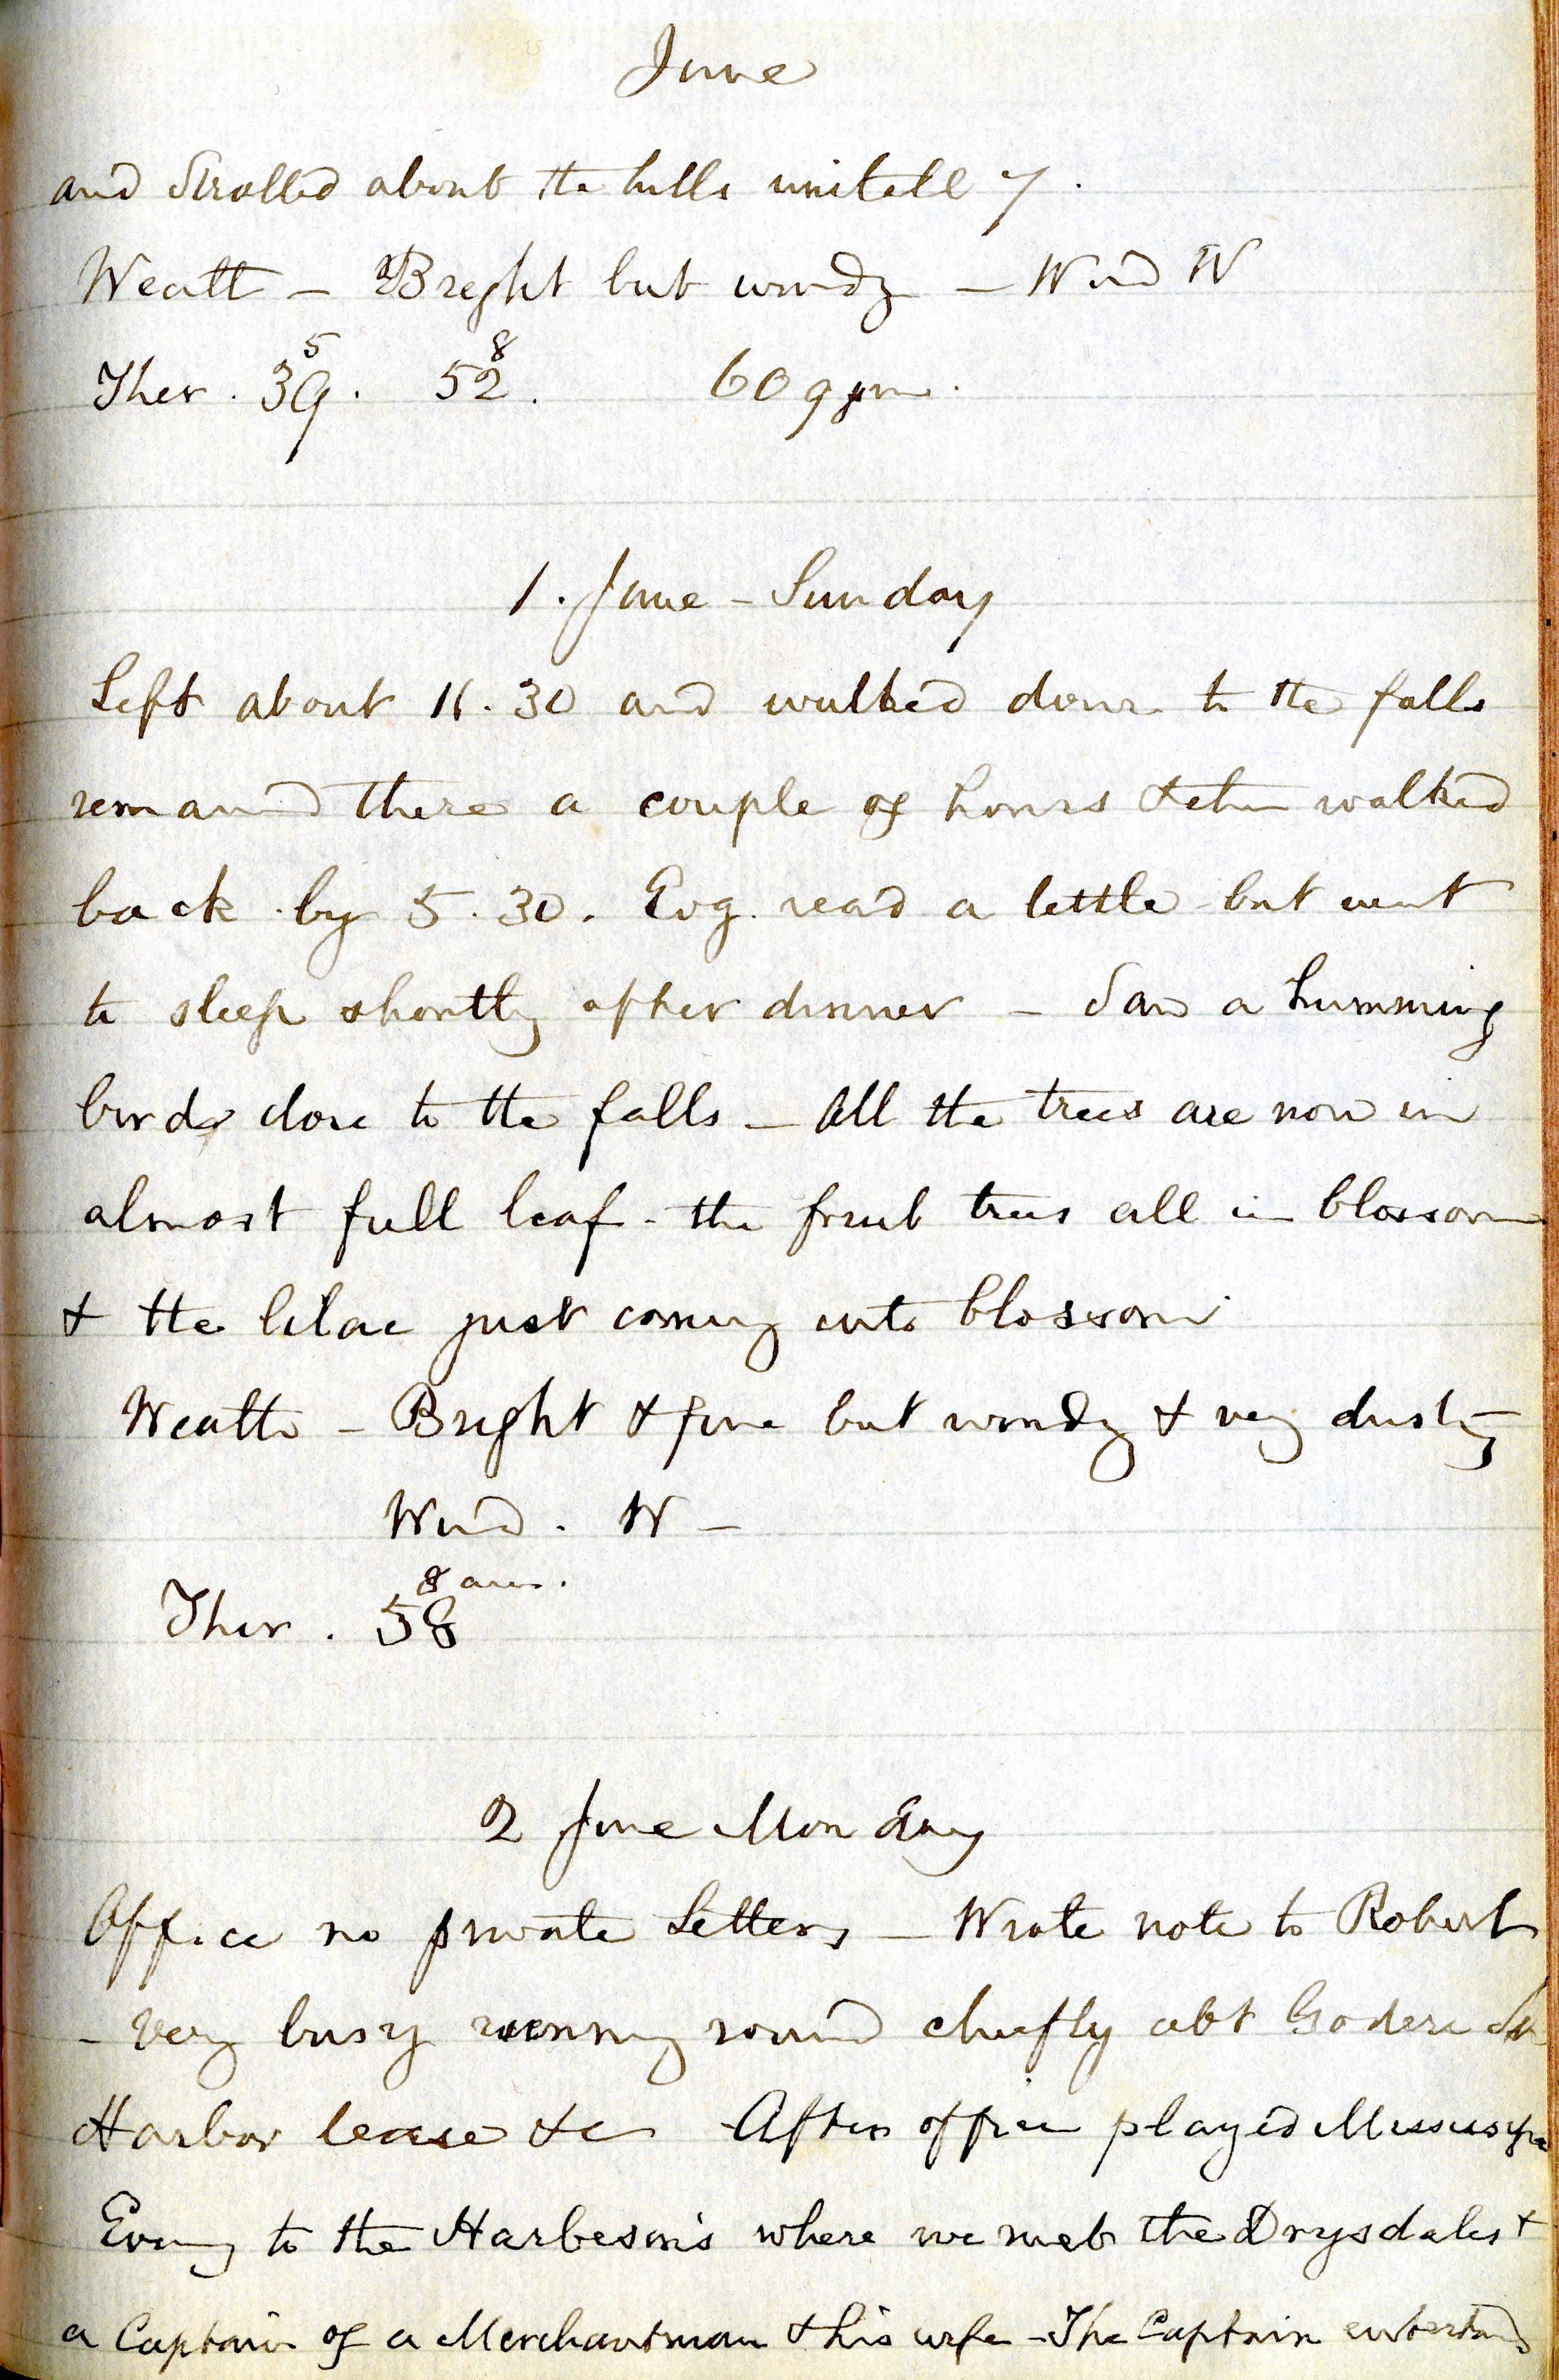 June
and Strolled about the hills untill 7.
Weath - Bright but windy - Wind W
5 8
Ther. 39. 52. 60 9 pm.
1. June - Sunday
Left about 11.30 and walked down to the falls
remaind there a couple of hours & then walked
back by 5.30. Evg. read a little but went
to sleep shortly after dinner - Saw a humming
bird close to the falls - All the trees are now in
almost full leaf - the fruit trees all in blossom
& the lilac just coming into blossom
Weath - Bright & fine but windy & very dusty
Wind. W -
8 am.
Ther. 58
2 June Monday
Office no private Letters - Wrote note to Robert
- Very busy running round chiefly abt Goderich
Harbor lease &c After office played
Evening to the Harbeson's where we met the Drysdales &
a Captain of a Merchantman & his wife - The Captain entertaind